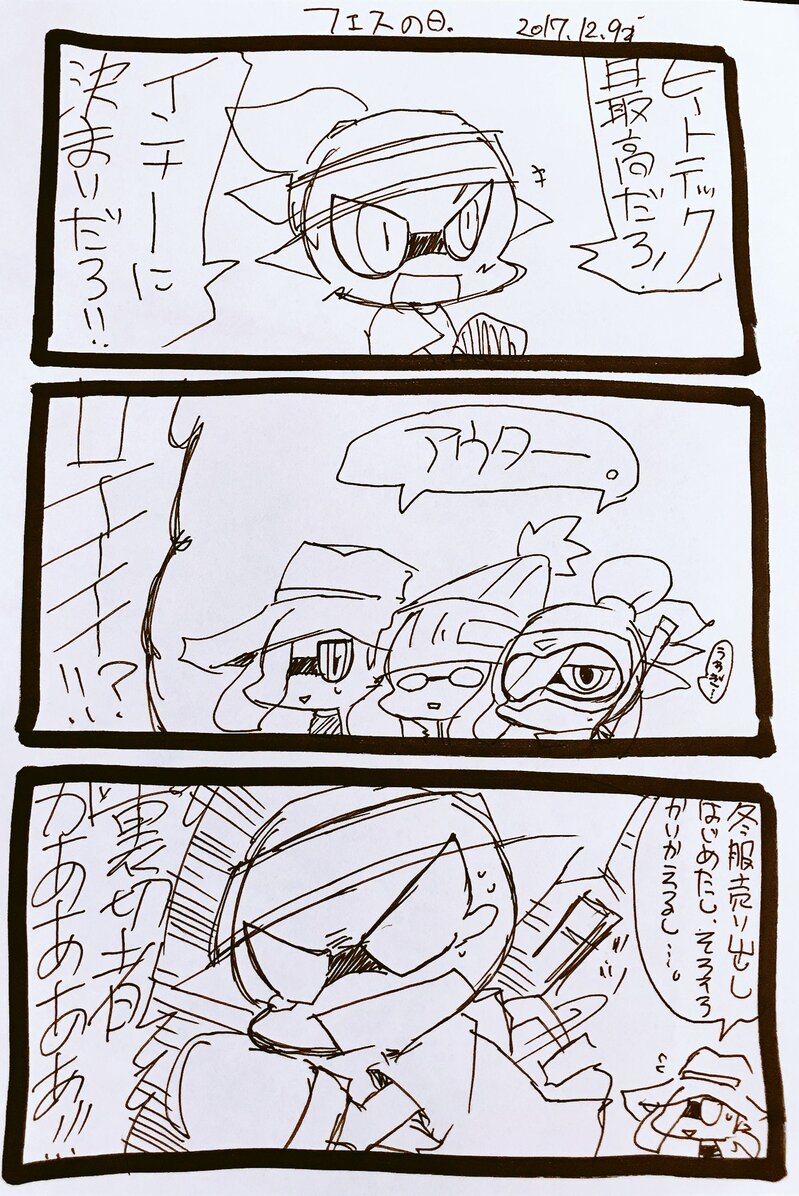 フェスの日.
2017.12.9
ヒートテック
最高だろ!
インナーに
決まりだろ!!
アウター。
うるさ…
イイイイ
!!?
冬服売り出し
はじめたし、そろそろ
かいかえるし…。
裏切者
があああああ!!!